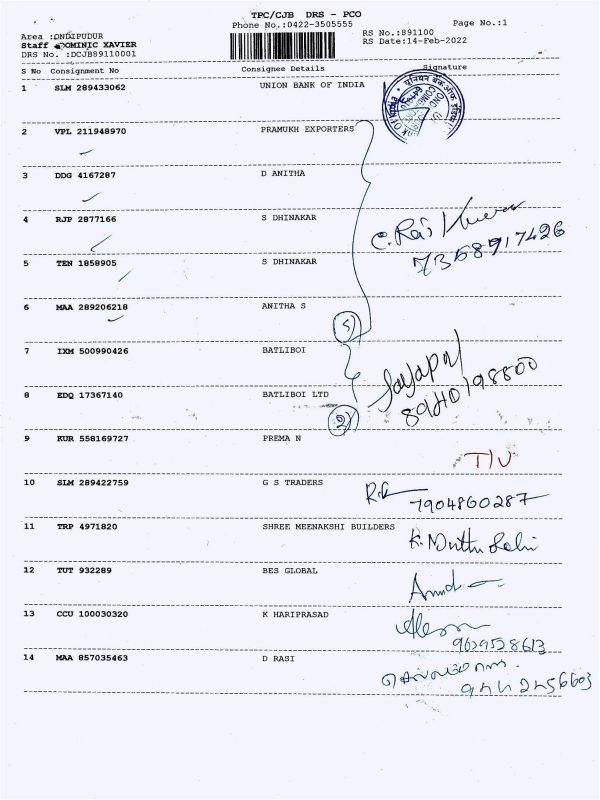 TPC/CJB DRS - PCO
Phone No.:0422-3505555
Page No.:1
Area :ONDIPUDUR
RS No.:891100
Staff :DOMINIC XAVIER
RS Date:14-Feb-2022
DRS No. :DCJB89110001
S No Consignment No Consignee Details Signature
1 SLM 289433062 UNION BANK OF INDIA
2 VPL 211948970 PRAMUKH EXPORTERS
3 DDG 4167287 D ANITHA
4 RJP 2877166 S DHINAKAR
C. Raj Kumar
7358917426
5 TEN 1858905 S DHINAKAR
6 MAA 289206218 ANITHA S
5
7 IXM 500990426 BATLIBOI
Jayapal
8940198800
8 EDQ 17367140 BATLIBOI LTD
2
9 KUR 558169727 PREMA N
10 SLM 289422759 G S TRADERS
7904860287
11 TRP 4971820 SHREE MEENAKSHI BUILDERS
12 TUT 932289 BES GLOBAL
13 CCU 100030320 K HARIPRASAD
9629528613
14 MAA 857035463 D RASI
9442456603